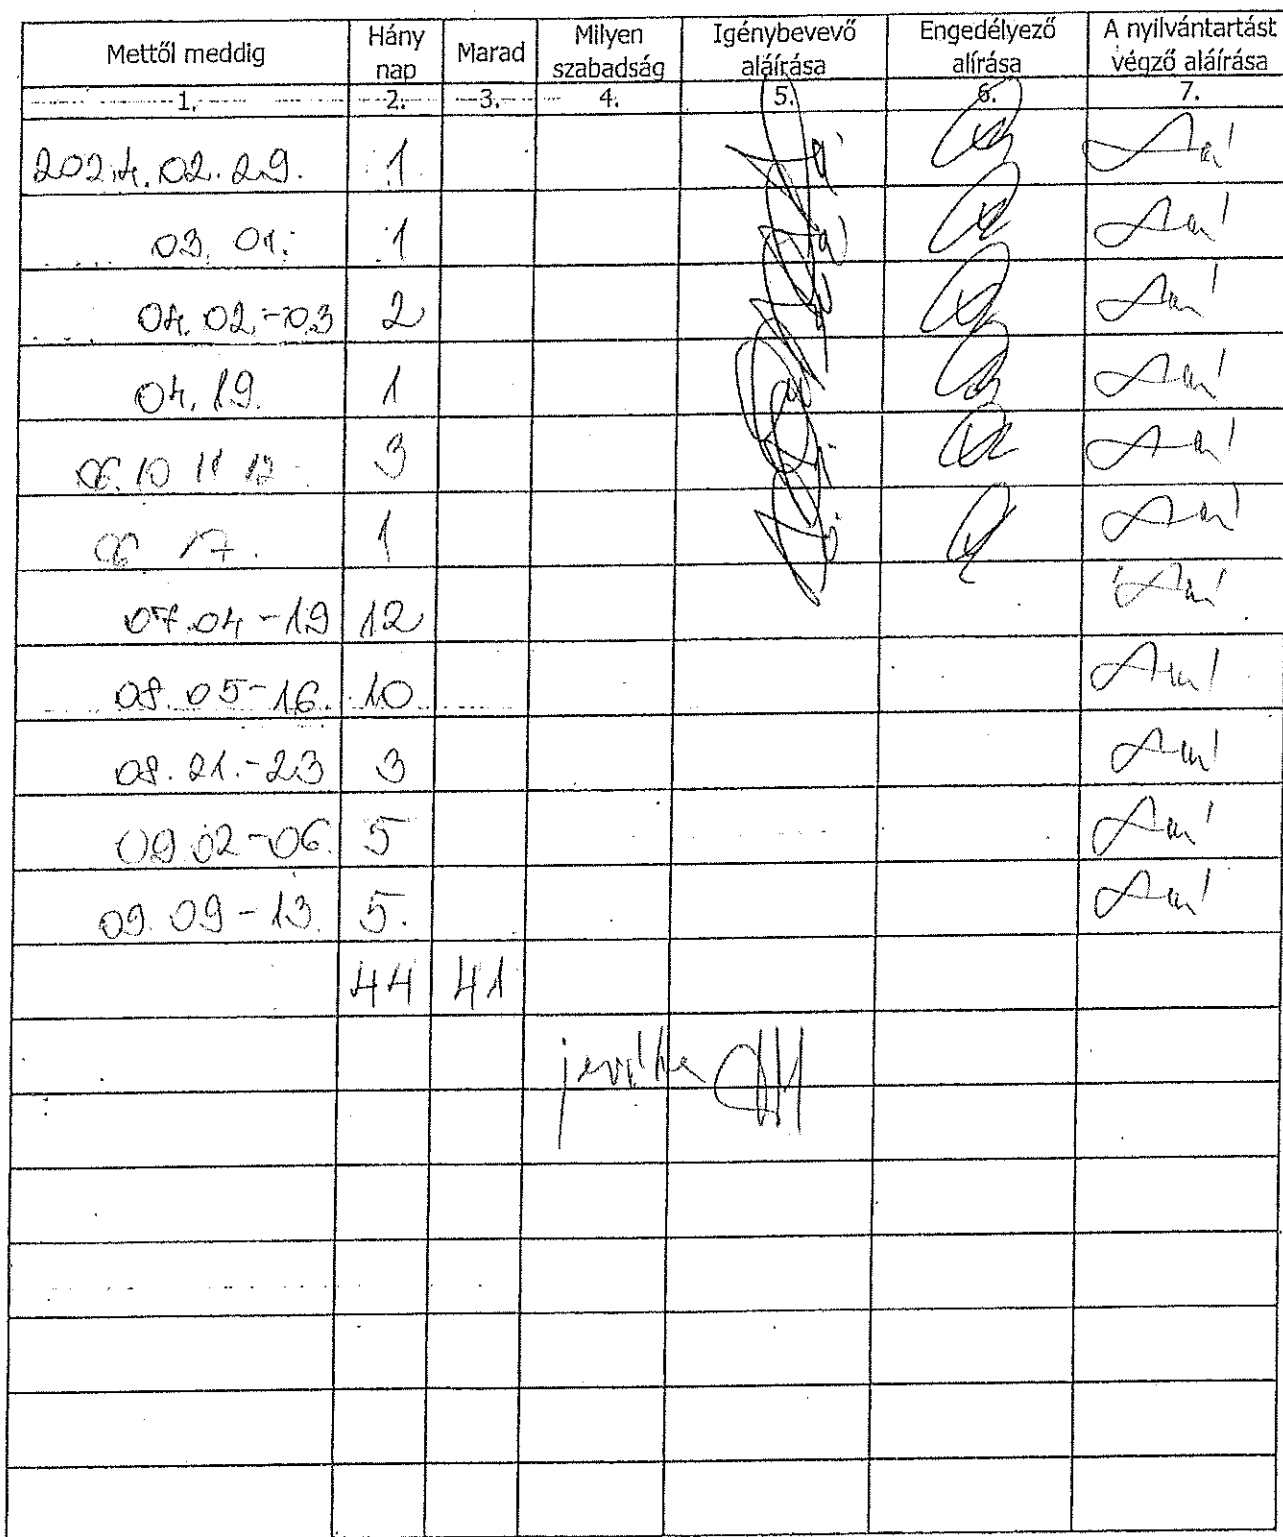 Mettől meddig Hány nap Marad Milyen szabadság Igénybevevő aláírása Engedélyező alírása A nyilvántartást végző aláírása
1. 2. 3. 4. 5. 6. 7.
2024.02.29. 1
03.01. 1
04.02.-03 2
04.19. 1
06.10 11 12. 3
06 17. 1
07.04-19 12
08.05-16. 10
08.21.-23 3
09.02-06. 5
09.09-13. 5.
44 41